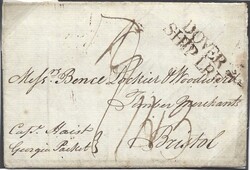 DOVER
SHIP LRE
Messrs Bence Lockier & Woodward
Timber Merchants
Bristol
Capt. Haist
Georgia Packet